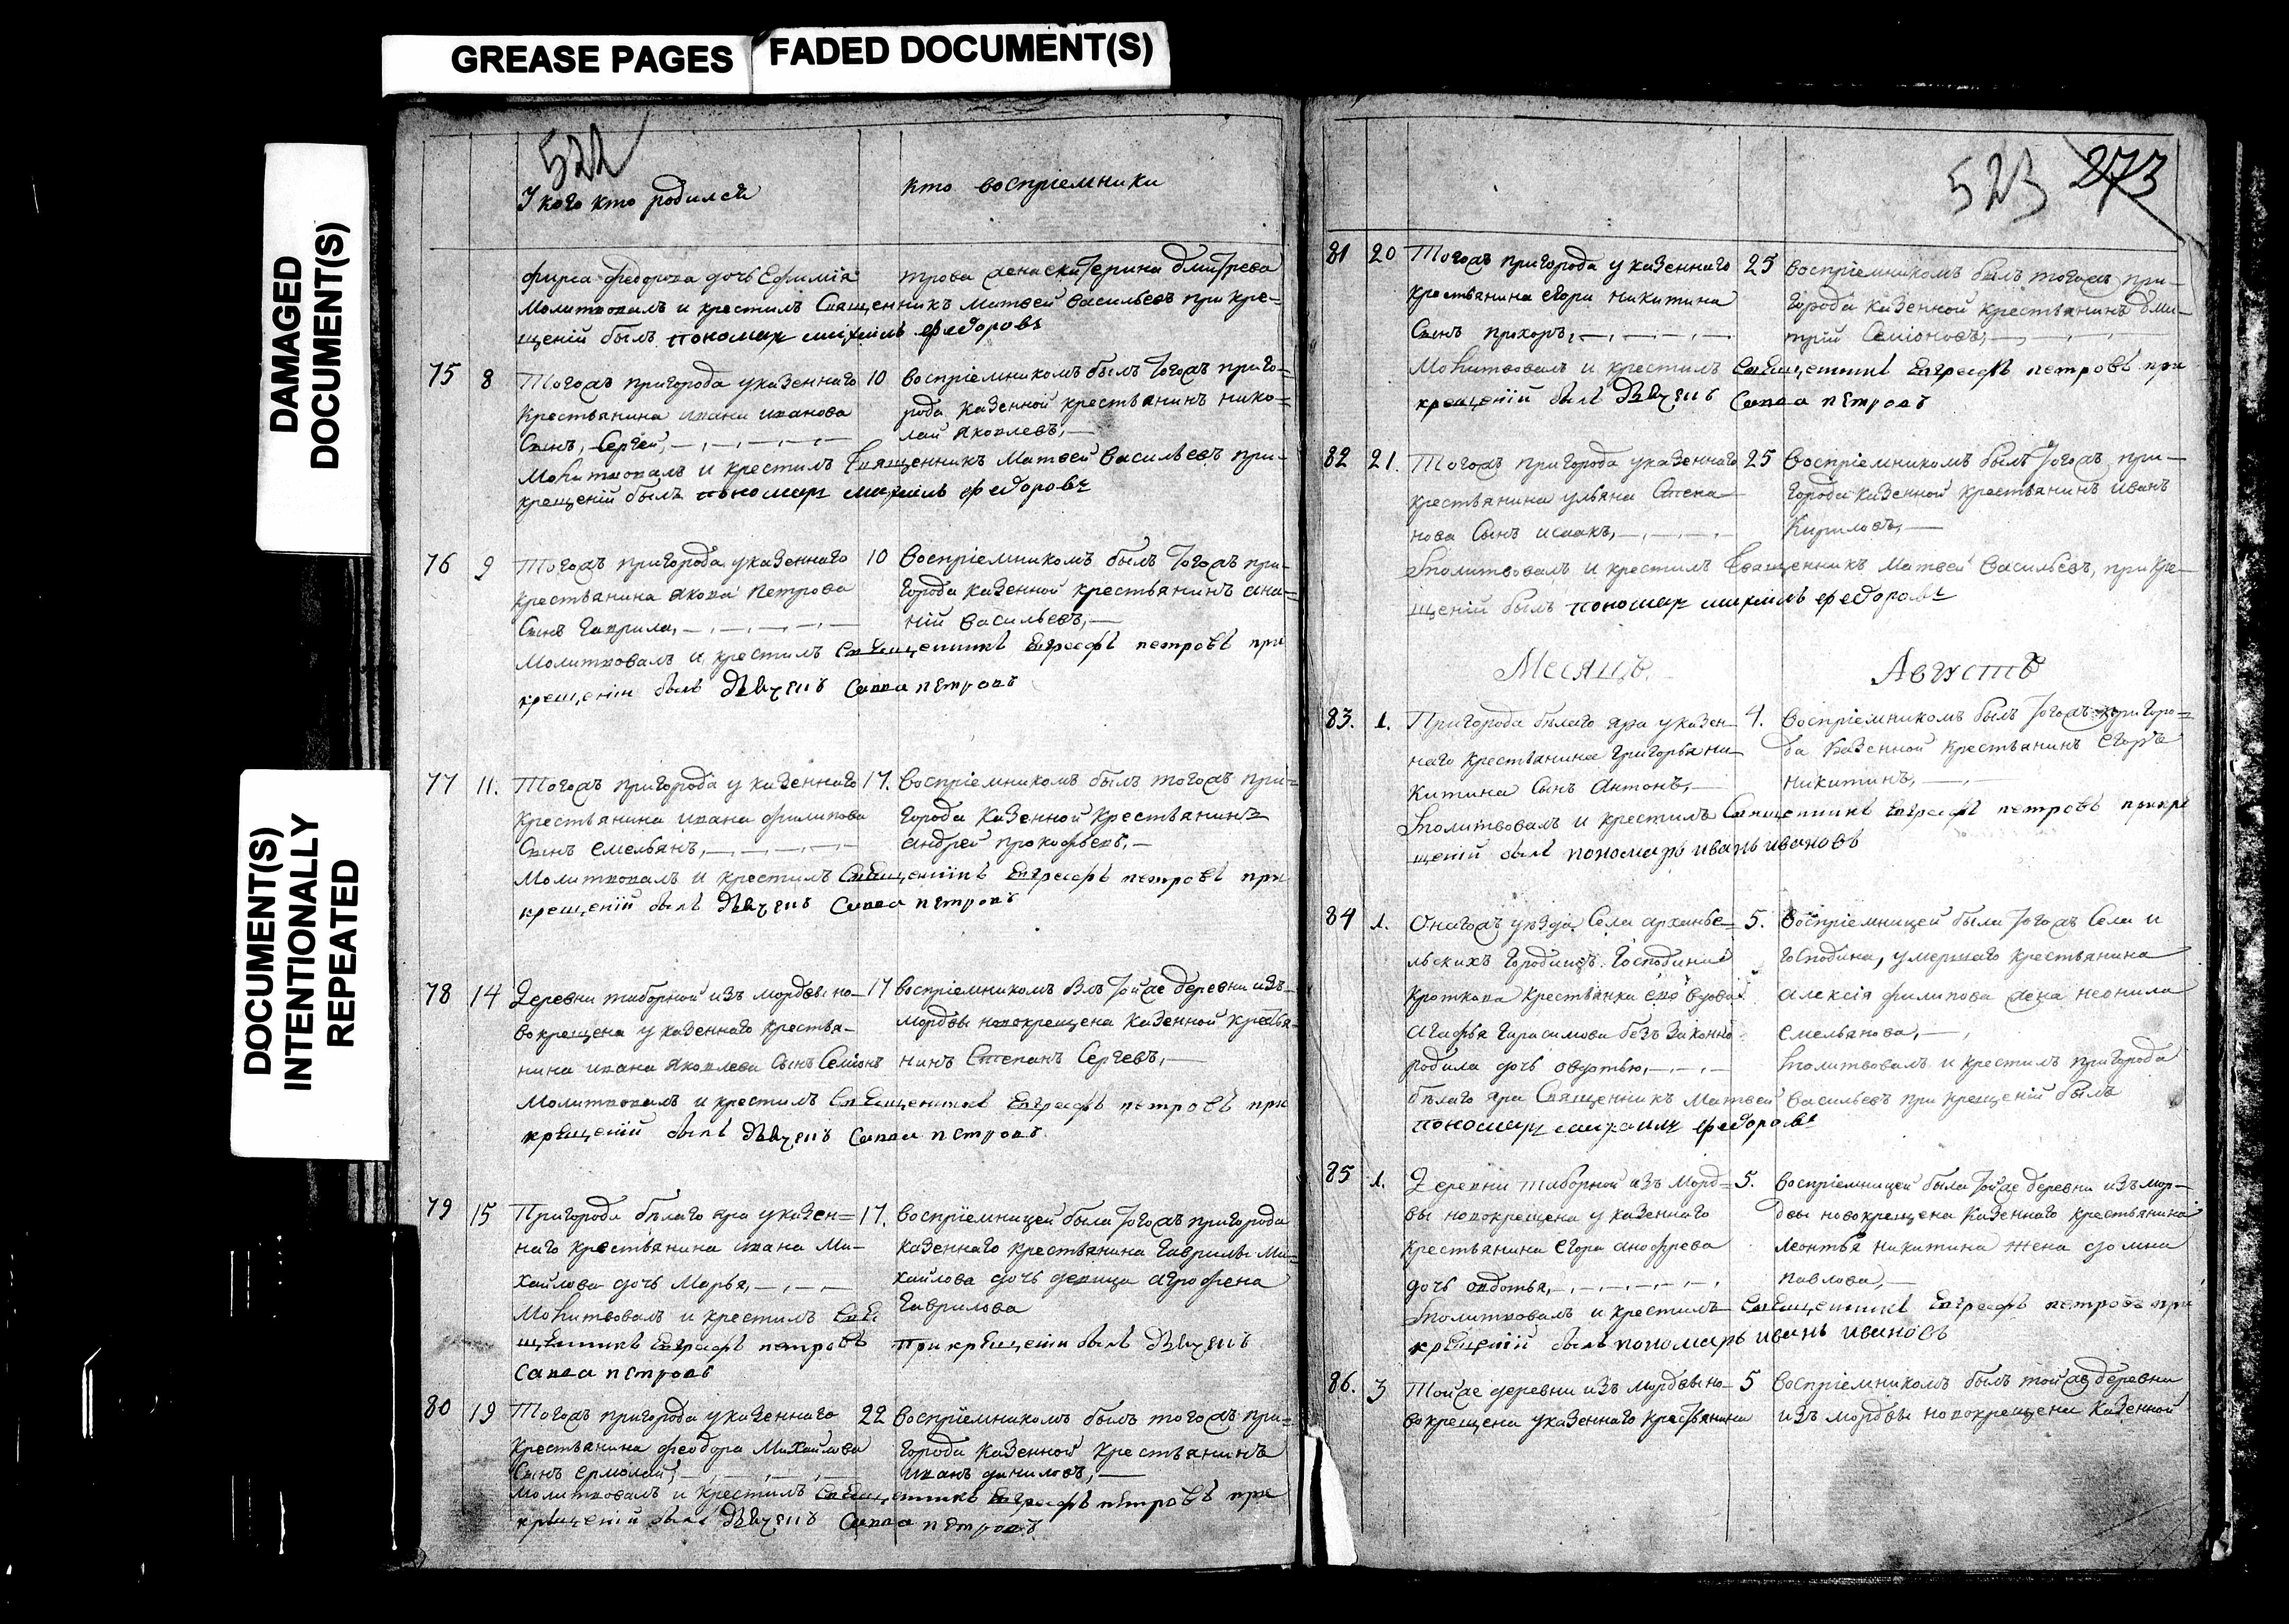 GREASE PAGES
FADED DOCUMENT(S)
DAMAGED
DOCUMENT(S)
DOCUMENT(S)
INTENTIONALLY
REPEATED
522
У кого кто родился
кто восприемники
фирса федорова дочь Ефимия
трова жена екатерина дмитрева
Молитвовалъ и крестилъ Священникъ Матвей Васильевъ при кре=
щеніи былъ пономарь михаилъ федоровъ
75 8 Тогожъ пригорода у казеннаго
крестьянина ивана иванова
Сынъ, Сергей,
10 восприемникомъ былъ тогожъ приго=
рода казенной крестьянинъ нико=
лай яковлевъ,
Молитвовалъ и крестилъ Священникъ Матвей Васильевъ при-
крещеніи былъ пономарь михаилъ федоровъ
76 9 Тогожъ пригорода у казеннаго
крестьянина якова Петрова
Сынъ Гаврила,
10 Восприемникомъ былъ тогожъ при-
города казенной крестьянинъ ана=
ній васильевъ,
Молитвовалъ и крестилъ Священникъ Евграфъ петровъ при
крещеніи былъ дьячекъ Савва петровъ
77 11. Тогожъ пригорода у казеннаго
крестьянина ивана филипова
Сынъ емельянъ,
17. восприемникомъ былъ тогожъ при=
города казенной крестьянинъ
андрей прокофьевъ,
Молитвовалъ и крестилъ Священникъ Евграфъ петровъ при
крещеніи былъ дьячекъ Савва петровъ
78 14 Деревни таборной изъ мордвы но-
вокрещена у казеннаго крестья-
нина ивана яковлева Сынъ Семіонъ
17 восприемникомъ былъ тойже деревни изъ
мордвы новокрещена казенной крестья-
нинъ Степанъ Сергевъ,
Молитвовалъ и крестилъ Священникъ Евграфъ петровъ при
крещеніи былъ дьячекъ Савва петровъ
79 15 Пригорода белаго яра у казен=
наго крестьянина ивана Ми-
хайлова дочь Марья,
17. восприемницей была тогожъ пригорода
казеннаго крестьянина Гаврилы Ми-
хайлова дочь девица агрофена
Гаврилова
Молитвовалъ и крестилъ Свя
щенникъ Евграфъ петровъ
при крещеніи былъ дьячекъ
Савва петровъ
80 19 Тогожъ пригорода у казеннаго
крестьянина феодора Михайлова
Сынъ ермолай,
22 восприемникомъ былъ тогожъ при=
города казенной крестьянинъ
иванъ даниловъ,
Молитвовалъ и крестилъ Священникъ Евграфъ петровъ при
крещеніи былъ дьячекъ Савва петровъ
523 273
81 20 Тогожъ пригорода у казеннаго
крестьянина егора никитина
Сынъ прохоръ,
25 восприемникомъ былъ тогожъ при-
города казенной крестьянинъ дми-
трій Семіоновъ,
Молитвовалъ и крестилъ Священникъ Евграфъ петровъ при
крещеніи былъ дьячекъ Савва петровъ
82 21. Тогожъ пригорода у казеннаго
крестьянина ульяна Степа-
нова Сынъ исаакъ,
25 восприемникомъ былъ тогожъ при-
города казенной крестьянинъ иванъ
Кириловъ,
Молитвовалъ и крестилъ Священникъ Матвей Васильевъ, при кре-
щеніи былъ пономарь михаилъ федоровъ
Месяцъ Августъ
83. 1. Пригорода белаго яра у казен-
наго крестьянина Григорья ни-
китина Сынъ Антонъ,
4. восприемникомъ былъ тогожъ пригоро=
да казенной крестьянинъ Егоръ
никитинъ,
Молитвовалъ и крестилъ Священникъ Евграфъ петровъ при кре
щеніи былъ пономарь иванъ ивановъ
84 1. Онагожъ уезда, Села арханге=
льскихъ Городищъ. Господина
Кроткова Крестьянка вдова
агафья Гарасимова беззаконно
родила дочь овдотью,
5. восприемницей была тогожъ Села и
господина, умершаго крестьянина
алексія филипова жена неонила
емельянова,
Молитвовалъ и крестилъ пригорода
белаго яра Священникъ Матвей Васильевъ при крещеніи былъ
пономарь михаилъ федоровъ
85 1. Деревни таборной изъ морд=
вы новокрещена у казеннаго
крестьянина егора анофрева
дочь овдотья,
5. восприемницей была тойже деревни изъ мор-
двы новокрещена казеннаго крестьянина
леонтья никитина жена домна
павлова,
Молитвовалъ и крестилъ Священникъ Евграфъ петровъ при
крещеніи былъ пономарь иванъ ивановъ
86. 3 Тойже деревни изъ мордвы но-
вокрещена у казеннаго крестьянина
5 восприемникомъ былъ тойже деревни
изъ мордвы новокрещена казенной